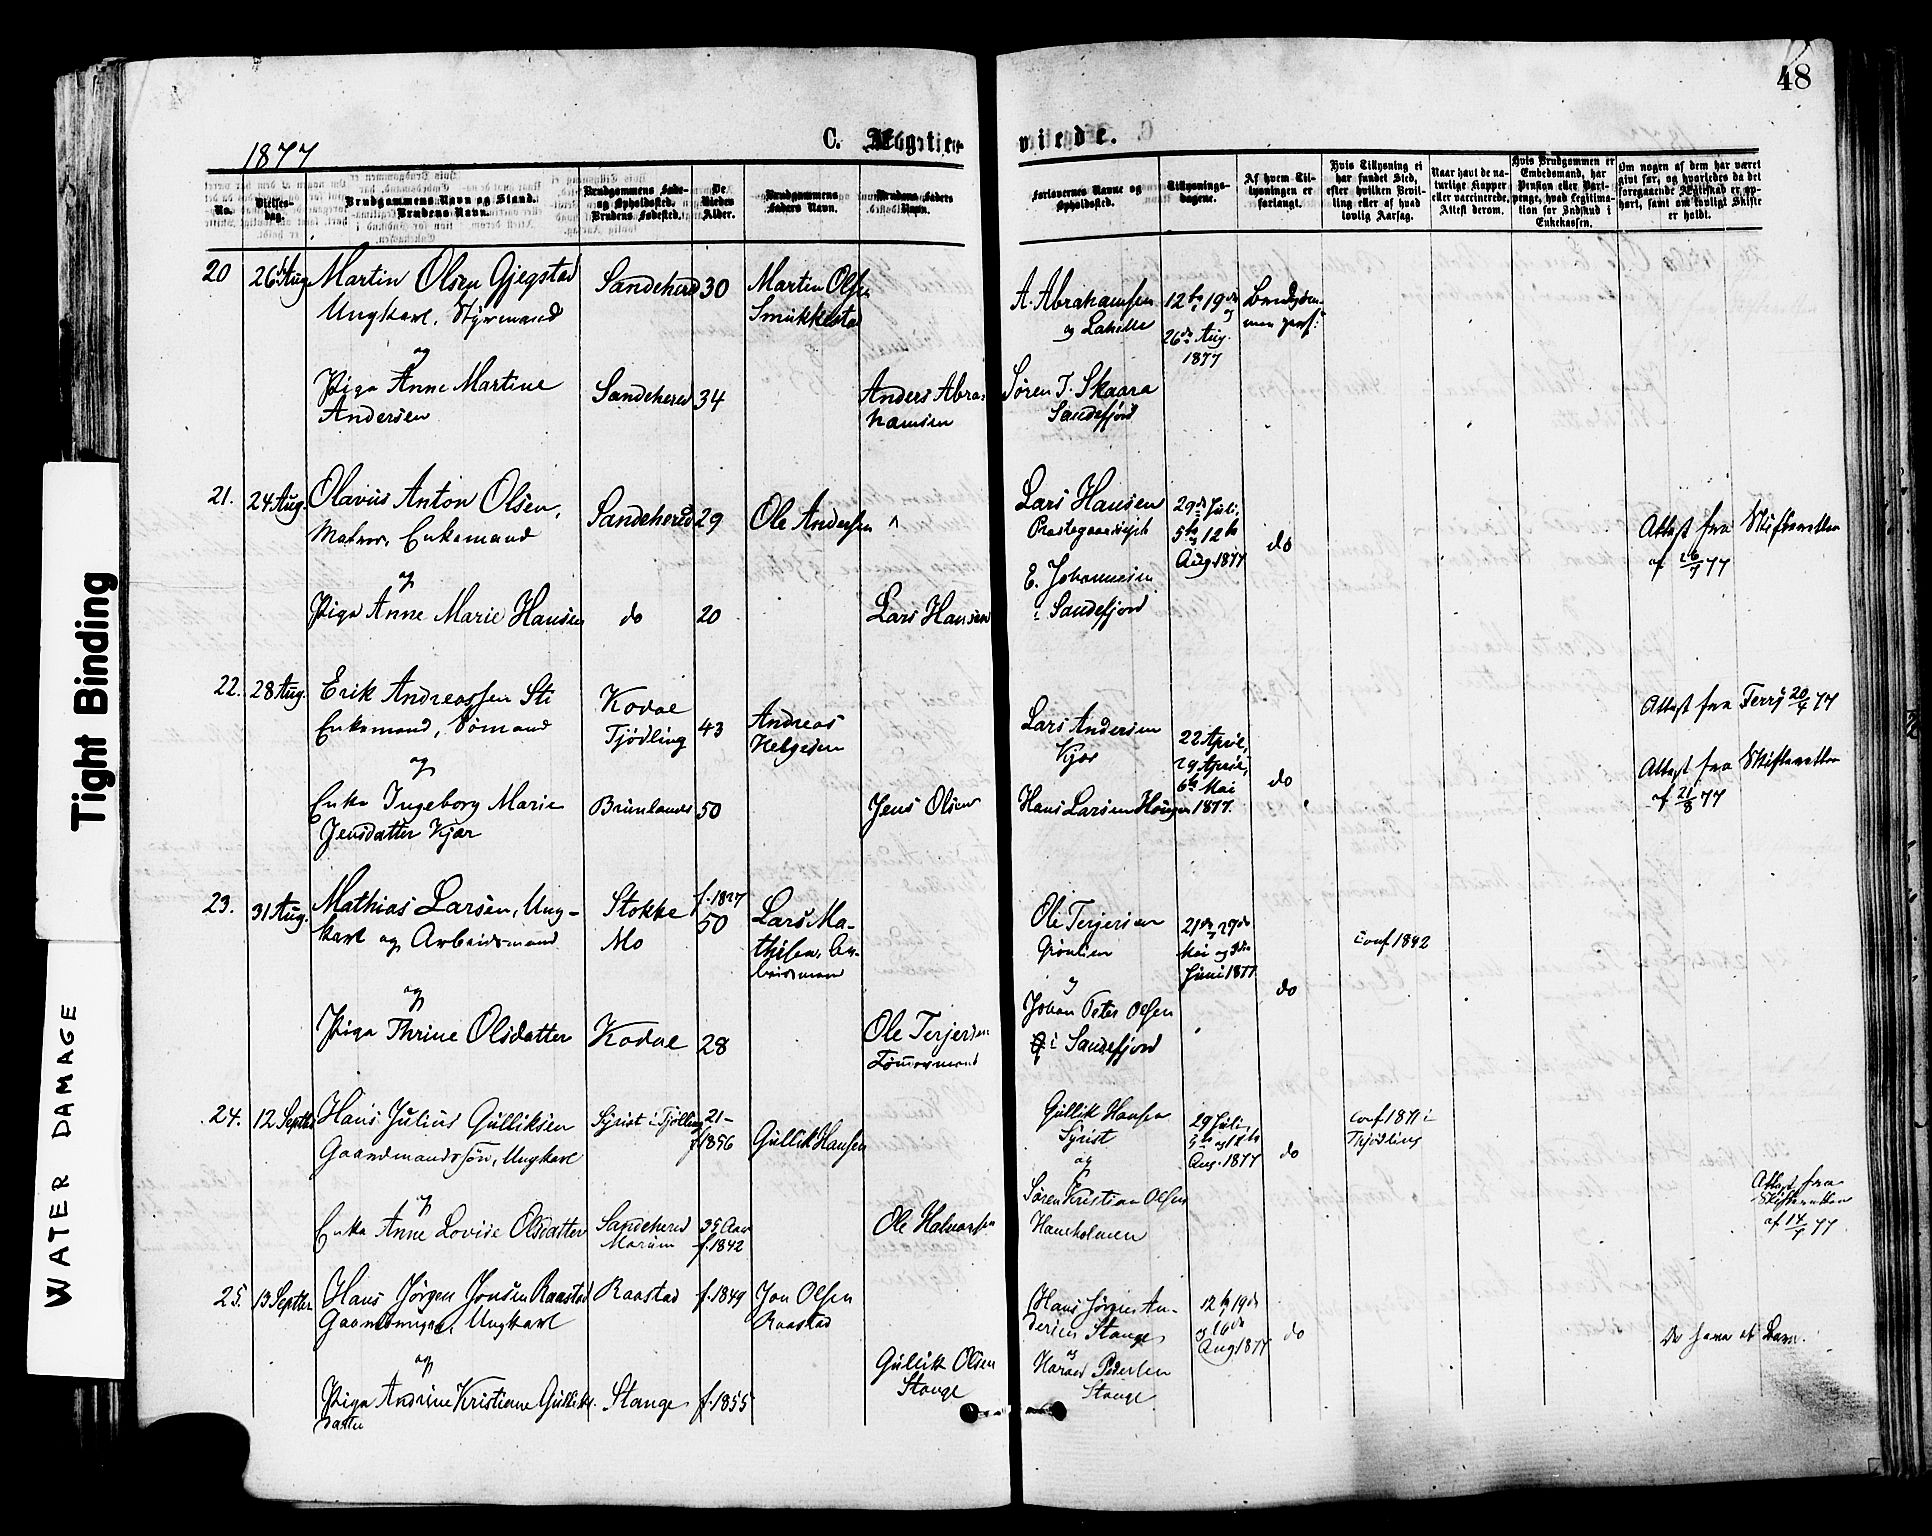 48
1877
C. Ægtevie
viede.
No.
Vielses-
dag.
Brudgommens Navn og Stand.
Brudens Navn.
Brudgommens Føde-
og Opholdssted.
Brudens Fødested.
De
Viedes
Alder.
Brudgommens
Faders Navn.
Brudens Faders
Navn.
Forlovernes Navne og
Opholdssted.
Tillysnings-
dagene.
Af hvem Til-
lysningen er
forlangt.
Hvis Tillysning ei
har fundet Sted,
efter hvilken Bevil-
ling eller af hvad
lovlig Aarsag.
Naar havt de na-
turlige Kopper
eller vaccinerede.
Attest derom.
Hvis Brudgommen er
Embedsmand, har
Pension eller Vart-
penge, hvad Legitima-
tion for Indskud i
Enkekassen.
Om nogen af dem har været
gift før, og hvorledes da det
foregaaende Ægteskab er op-
hørt, samt om lovligt Skifte
er holdt.
20 26de Aug. Martin Olsen Gjegstad Sandeherd 30 Martin Olsen
Ungkarl, Styrmand Smukkestad
A. Abrahamsen 12te 19de og
26de Aug.
1877
og
Pige Anne Martine Sandeherd 34 Anders Abra-
Andersen hamsen
Søren T. Skaara
Sandefjord
21. 24 Aug. Olavus Anton Olsen, Sandeherd 29 Ole Andersen
Enkemand
Lars Hansen 29de Juli,
5te og 12te
Aug 1877 do
Attest fra Skifteretten
af 26/7 77
og
Pige Anne Marie Hansen do 20 Lars Hansen
E. Johannesen
i Sandefjord
22. 28 Aug. Erik Andreassen Sti Kodal 43 Andreas
Enkemand, Sømand Tjødling Helgesen
Lars Andersen
Kjær
22 April,
29 April,
6te Mai
1877. do
Attest fra Ferrÿ 20/4 77
Attest fra Skifteretten
af 21/8 77
og
Enke Ingeborg Marie Brunlanes 50 Jens Olsen
Jensdatter Kjær
Hans Larsen Haugen
23. 31 Aug. Mathias Larsen, Ung- Stokke f. 1827
karl og Arbeidsmand Mo 50 Lars Ma-
thisen, Ar-
beidsmand
Ole Terjersen
Grønlien
21de, 29de
Mai og 3die
Juni 1877 do
conf 1842
og
Pige Thrine Olsdatter Kodal 28 Ole Terjersen
Tømmermand
og
Johan Peter Olsen
i Sandefjord
24. 12 Septbr Hans Julius Gulliksen Syrist i Tjølling 21-
f 1856 Gullik Hansen
Gaardmandssøn, Ungkarl
Gullik Hansen
Syrist
og
29 Juli,
5te og 12te
Aug. 1877 do
conf 1871 i
Thjødling
og
Enke Anne Lovise Olsdatter Sandeherd 35 Aar
Marum f. 1842
Ole Halvorsen
Søren Kristian Olsen
Haneholmen
Attest fra
Skifteretten
af 14/7 77
25. 13 Septbr Hans Jørgen Jonsen Raastad Raastad f. 1849 Jon Olsen
Gaardbruger, Ungkarl Raastad
Hans Jørgen An-
dersen Stange
12te 19de
og 26de
Aug 1877 do
De have et Barn.
og
Pige Andrine Kristiane Gulliks- Stange f. 1855 Gullik Olsen
datter Stange
og
Harald Pedersen
Stange
Tight Binding
WATER DAMAGE